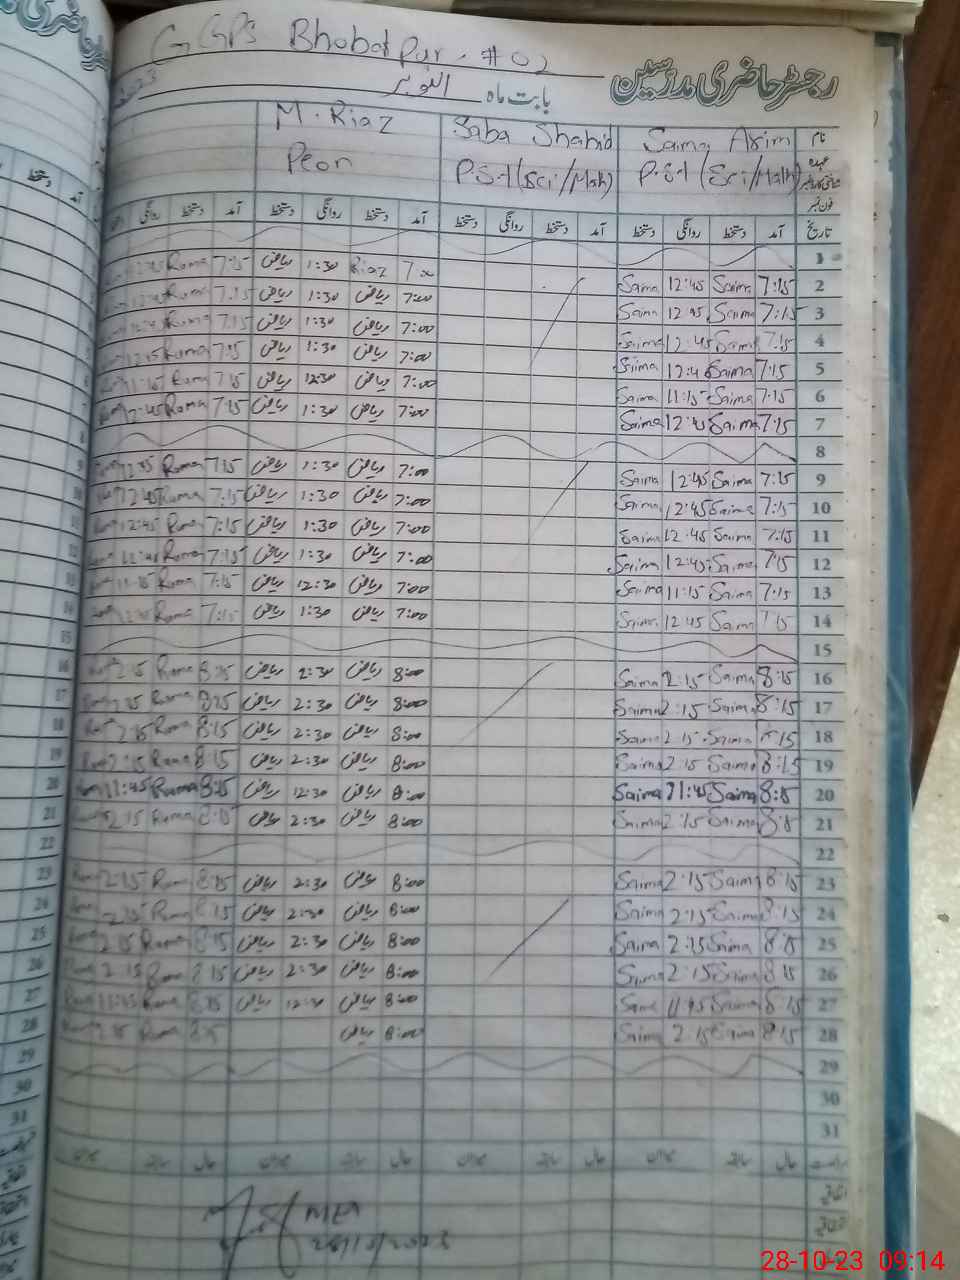 GGPS Bhobatpur - #02
رجسٹر حاضری مدرسین
بابت ماہ اکتوبر
نام Saima Asim Saba Shahid M. Riaz
عہدہ P.S.T (Sci/Math) P.S.T (Sci/Math) Peon
فون نمبر
تاریخ آمد دستخط روانگی دستخط آمد دستخط روانگی دستخط آمد دستخط روانگی دستخط آمد دستخط روانگی
1
2 7:15 Saima 12:45 Saima 7:00 Riaz 1:30 ریاض 7:15 Roma 12:45
3 7:15 Saima 12:45 Saima 7:00 ریاض 1:30 ریاض 7:15 Roma 12:45
4 7:15 Saima 12:45 Saima 7:00 ریاض 1:30 ریاض 7:15 Roma 12:45
5 7:15 Saima 12:45 Saima 7:00 ریاض 1:30 ریاض 7:15 Roma 12:45
6 7:15 Saima 11:15 Saima 7:00 ریاض 12:30 ریاض 7:15 Roma 11:15
7 7:15 Saima 12:45 Saima 7:00 ریاض 1:30 ریاض 7:15 Roma 12:45
8
9 7:15 Saima 12:45 Saima 7:00 ریاض 1:30 ریاض 7:15 Roma 12:45
10 7:15 Saima 12:45 Saima 7:00 ریاض 1:30 ریاض 7:15 Roma 12:45
11 7:15 Saima 12:45 Saima 7:00 ریاض 1:30 ریاض 7:15 Roma 12:45
12 7:15 Saima 12:45 Saima 7:00 ریاض 1:30 ریاض 7:15 Roma 12:45
13 7:15 Saima 11:15 Saima 7:00 ریاض 12:30 ریاض 7:15 Roma 11:15
14 7:15 Saima 12:45 Saima 7:00 ریاض 1:30 ریاض 7:15 Roma 12:45
15
16 8:15 Saima 2:15 Saima 8:00 ریاض 2:30 ریاض 8:15 Roma 2:15
17 8:15 Saima 2:15 Saima 8:00 ریاض 2:30 ریاض 8:15 Roma 2:15
18 8:15 Saima 2:15 Saima 8:00 ریاض 2:30 ریاض 8:15 Roma 2:15
19 8:15 Saima 2:15 Saima 8:00 ریاض 2:30 ریاض 8:15 Roma 2:15
20 8:15 Saima 11:45 Saima 8:00 ریاض 12:30 ریاض 8:15 Roma 11:45
21 8:15 Saima 2:15 Saima 8:00 ریاض 2:30 ریاض 8:15 Roma 2:15
22
23 8:15 Saima 2:15 Saima 8:00 ریاض 2:30 ریاض 8:15 Roma 2:15
24 8:15 Saima 2:15 Saima 8:00 ریاض 2:30 ریاض 8:15 Roma 2:15
25 8:15 Saima 2:15 Saima 8:00 ریاض 2:30 ریاض 8:15 Roma 2:15
26 8:15 Saima 2:15 Saima 8:00 ریاض 2:30 ریاض 8:15 Roma 2:15
27 8:15 Saima 11:45 Saima 8:00 ریاض 12:30 ریاض 8:15 Roma 11:45
28 8:15 Saima 2:15 Saima 8:00 ریاض 8:15 Roma 2:15
29
30
31
MEA
28/10/2023
28-10-23 09:14